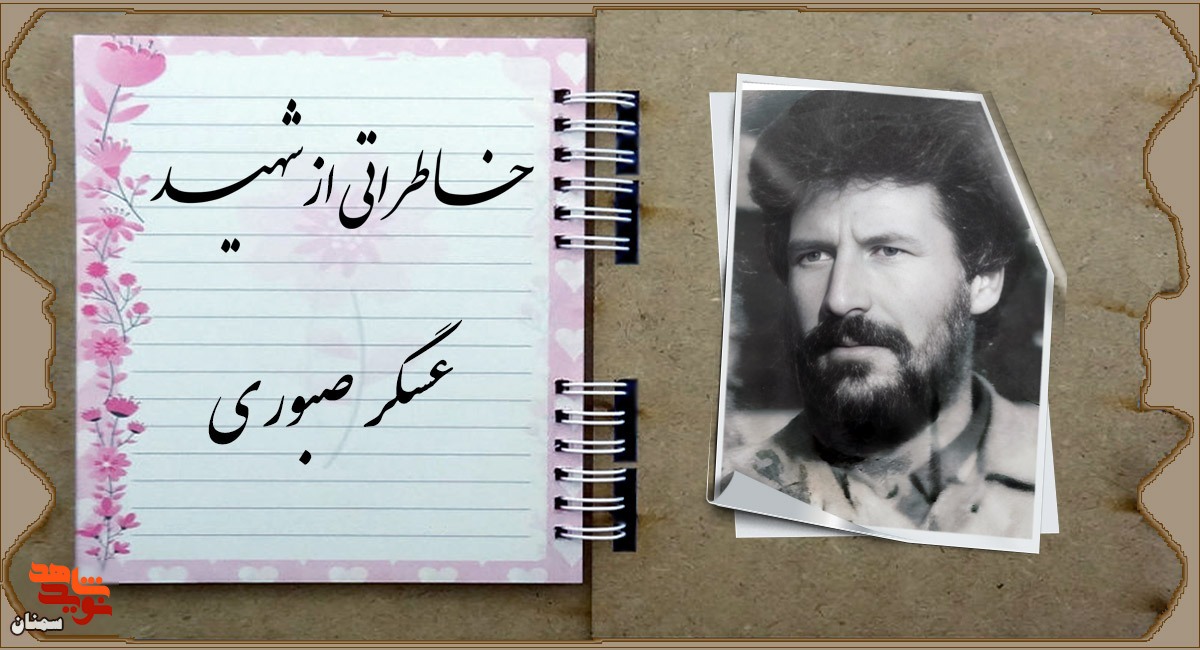 خاطراتی از شهید
عسگر صبوری
نوید شاهد
سمنان